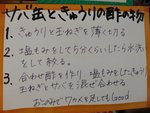 サバ缶ときゅうりの酢の物
1. きゅうりと玉ねぎを薄く切る
2. 塩もみをして5分くらいしたら水洗い
をして絞る。
3. 合わせ酢を作り、塩もみをしたきゅうり
玉ねぎとサバを混ぜ合わせる
お好みでワカメを足してもGood